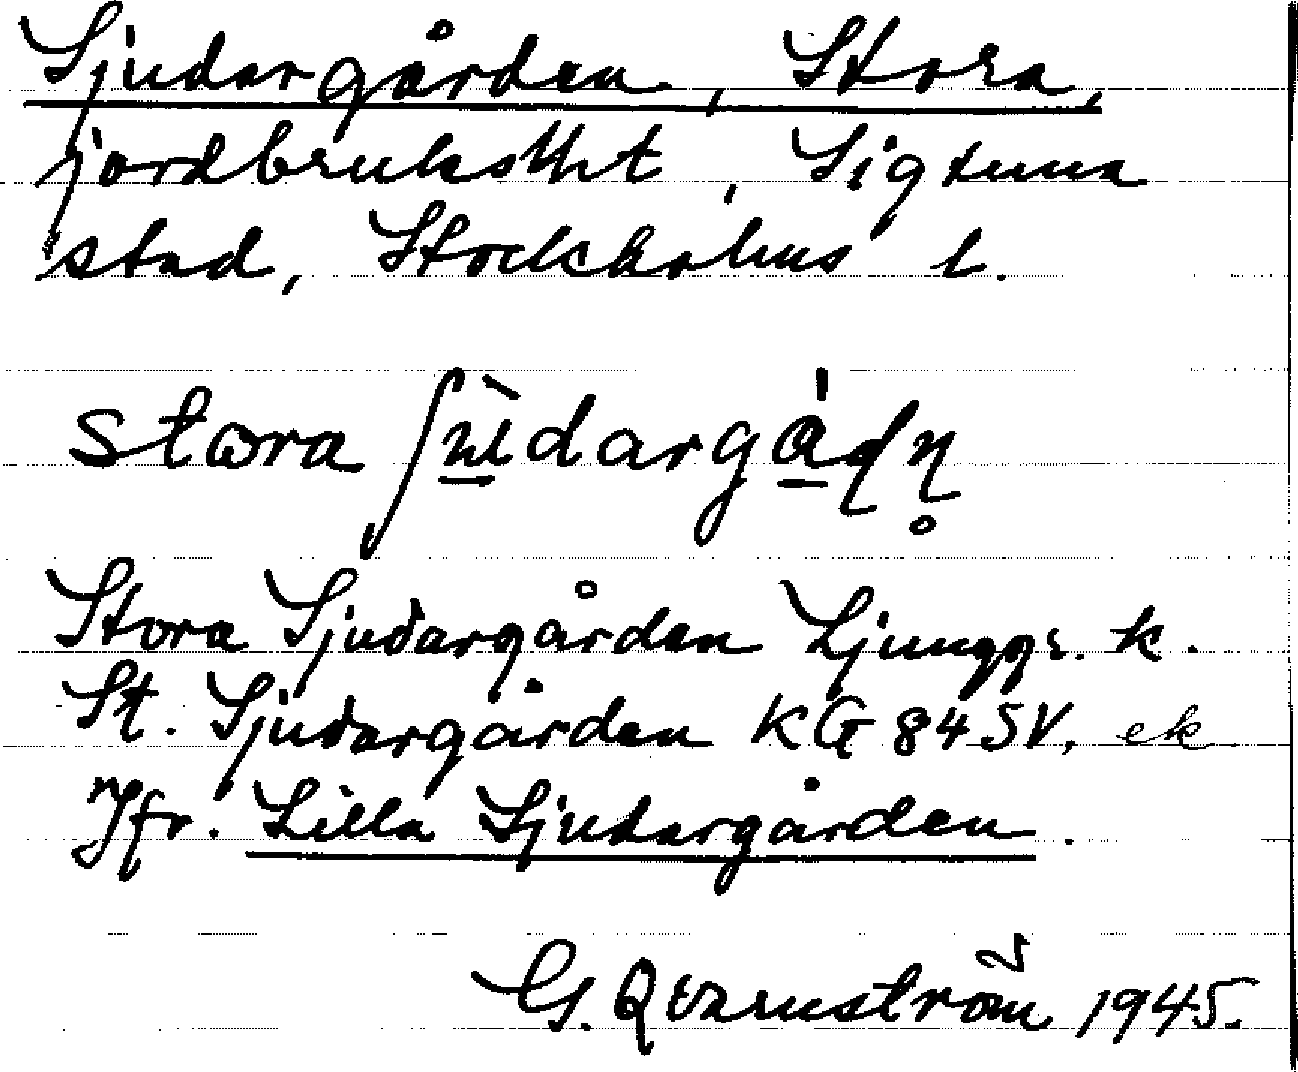 Sjudargården, Stora,
jordbruksfht, Sigtuna
stad, Stockholms l.
stora
Stora Sjudargården Ljunggr. k.
St. Sjudargården KG 84 SV, ek
Jfr. Lilla Sjudargården.
G. Qvarnström 1945.